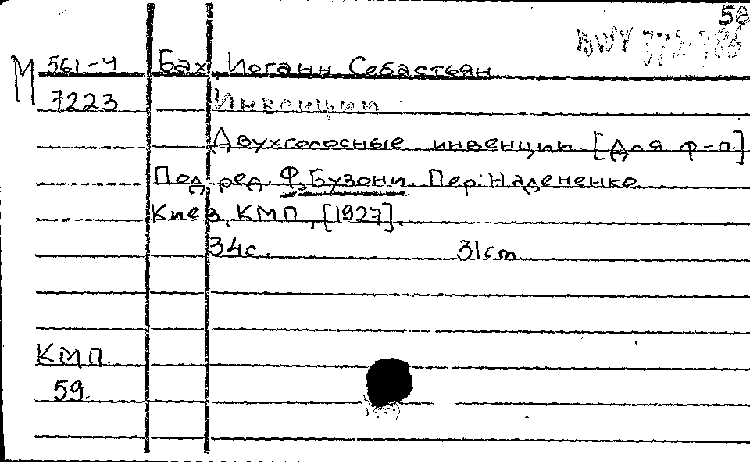 58
BWV 772-786
М 561-4 Бах Иоганн Себастьян
7223 Инвенции
Двухголосные инвенции [Для ф-п]
Под ред. Ф. Бузони. Пер: Надененко
Киев, КМП, [1927].
34с. 31cm
КМП
59.